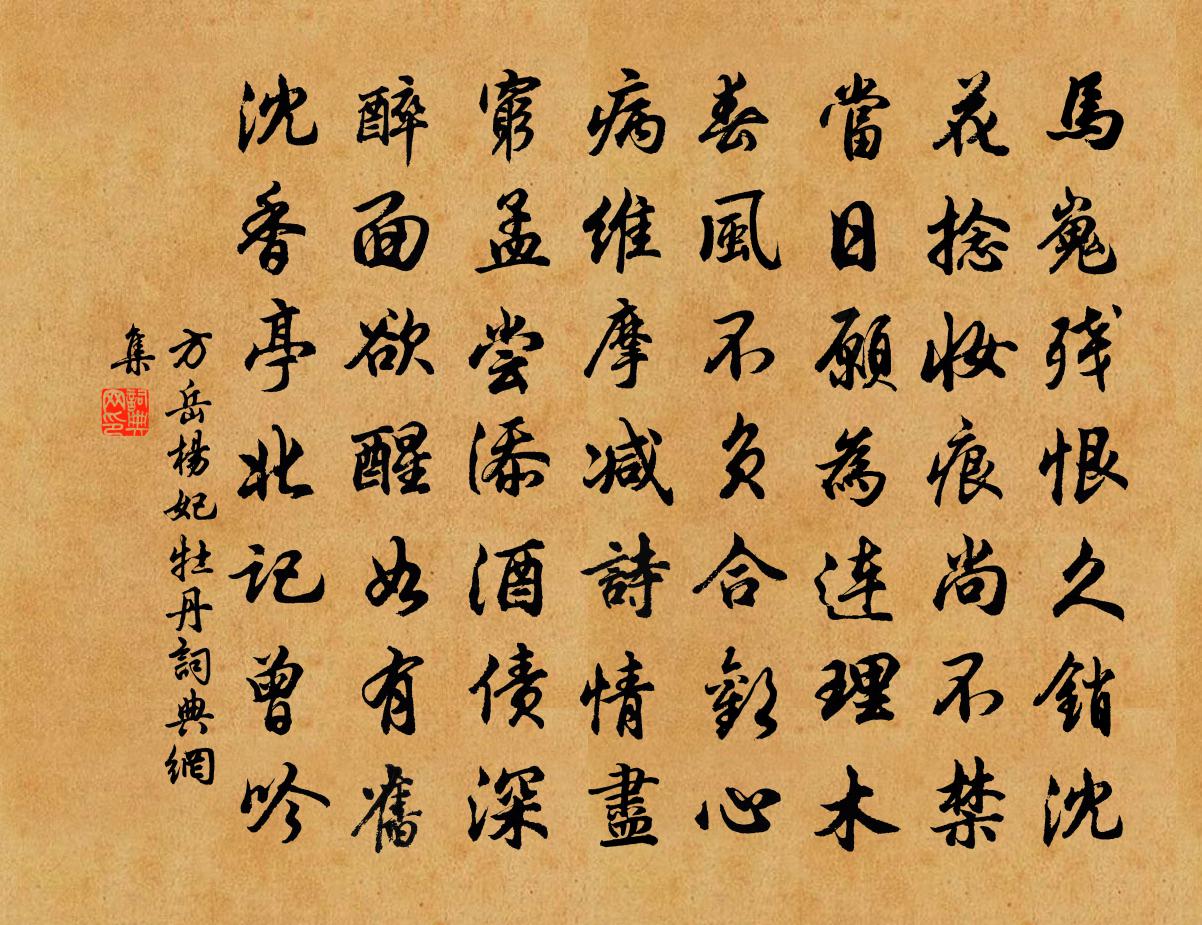 馬嵬残恨久銷沈
花捻妝痕尚不禁
當日願為連理木
春風不負合歡心
病維摩減詩情盡
窮孟嘗添酒債深
醉面欲醒如有舊
沈香亭北記曾吟
方岳楊妃牡丹詞典網
集
詞典
网印